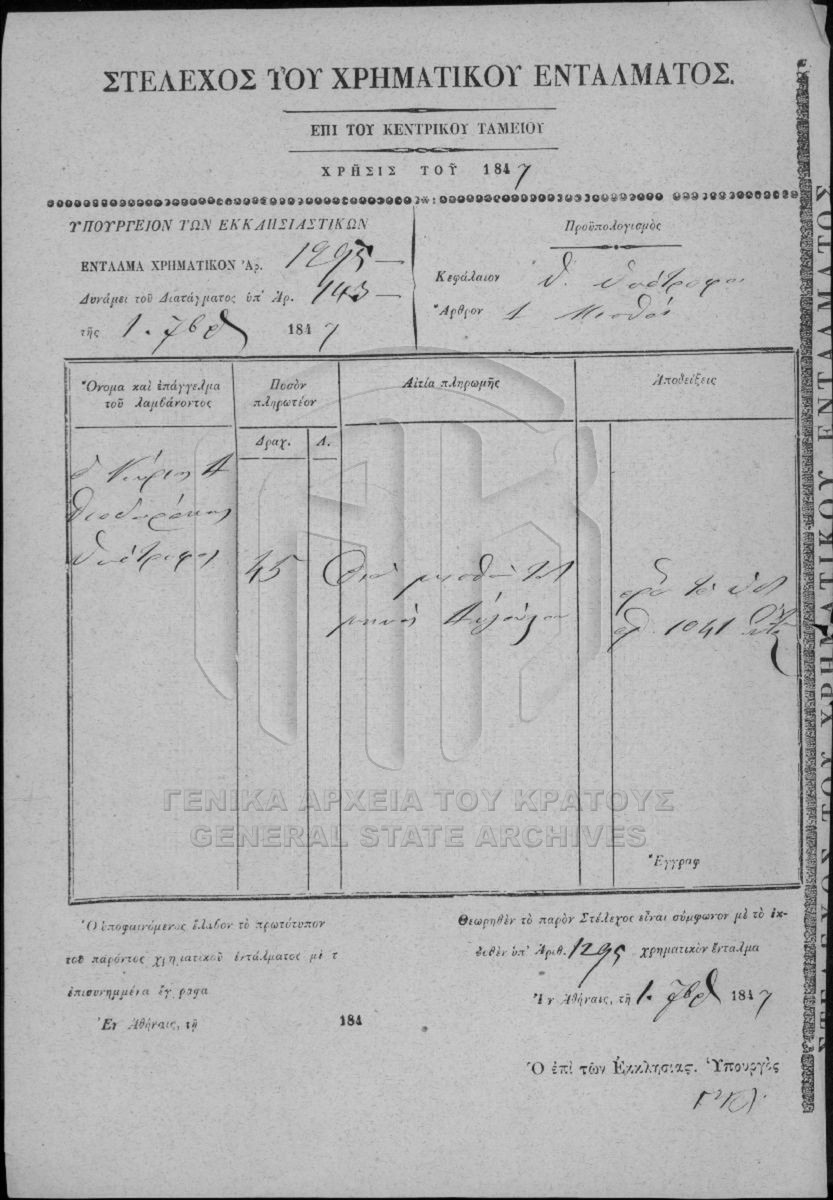 ΣΤΕΛΕΧΟΣ ΤΟΥ ΧΡΗΜΑΤΙΚΟΥ ΕΝΤΑΛΜΑΤΟΣ.
ΕΠΙ ΤΟΥ ΚΕΝΤΡΙΚΟΥ ΤΑΜΕΙΟΥ
ΧΡΗΣΙΣ ΤΟΥ͂ 1847
ΥΠΟΥΡΓΕΙΟΝ ΤΩΝ ΕΚΚΛΗΣΙΑΣΤΙΚΩΝ
ΕΝΤΑΛΜΑ ΧΡΗΜΑΤΙΚΟΝ Ἀρ. 1295
Δυνάμει τοῦ Διατάγματος ὑπ' Ἀρ. 143
τῆς 1. 7βρ 1847
Προϋπολογισμὸς
Κεφάλαιον Θ. Ὑπότροφοι
Ἄρθρον 1 Μισθὸς
Ὄνομα καὶ ἐπάγγελμα
τοῦ λαμβάνοντος
Ποσὸν
πληρωτέον
Αἰτία πληρωμῆς
Ἀποδείξεις
Δραχ.
Λ.
ὁ Κύριος Α
Θεοδωράκης
Ὑπότροφος
45
Διὰ μισθὸν τοῦ
μηνὸς Αὐγούστου
ὑπ
ἀρ. 1041
Ἔγγραφ
Ὁ ὑποφαινόμενος ἔλαβον τὸ πρωτότυπον
τοῦ παρόντος χρηματικοῦ ἐντάλματος μὲ τ
ἐπισυνημμένα ἔγγραφα
Ἐν Ἀθήναις, τῇ 184
Θεωρηθὲν τὸ παρὸν Στέλεχος εἶναι σύμφωνον μὲ τὸ ἐκ-
δοθὲν ὑπ' Ἀριθ. 1295 χρηματικὸν ἔνταλμα
Ἐν Ἀθήναις, τῇ 1. 7βρ 1847
Ὁ ἐπὶ τῶν Ἐκκλησιας. Ὑπουργὸς
ΣΤΕΛΕΧΟΣ ΤΟΥ ΧΡΗΜΑΤΙΚΟΥ ΕΝΤΑΛΜΑΤΟΣ
ΓΕΝΙΚΑ ΑΡΧΕΙΑ ΤΟΥ ΚΡΑΤΟΥΣ
GENERAL STATE ARCHIVES